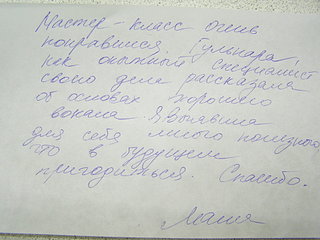 Мастер-класс очень
понравился. Гульнара,
как опытный специалист
своего дела рассказала
об основах хорошего
вокала. Я выявила
для себя много полезного,
что в будущем
пригодиться. Спасибо.
Маша